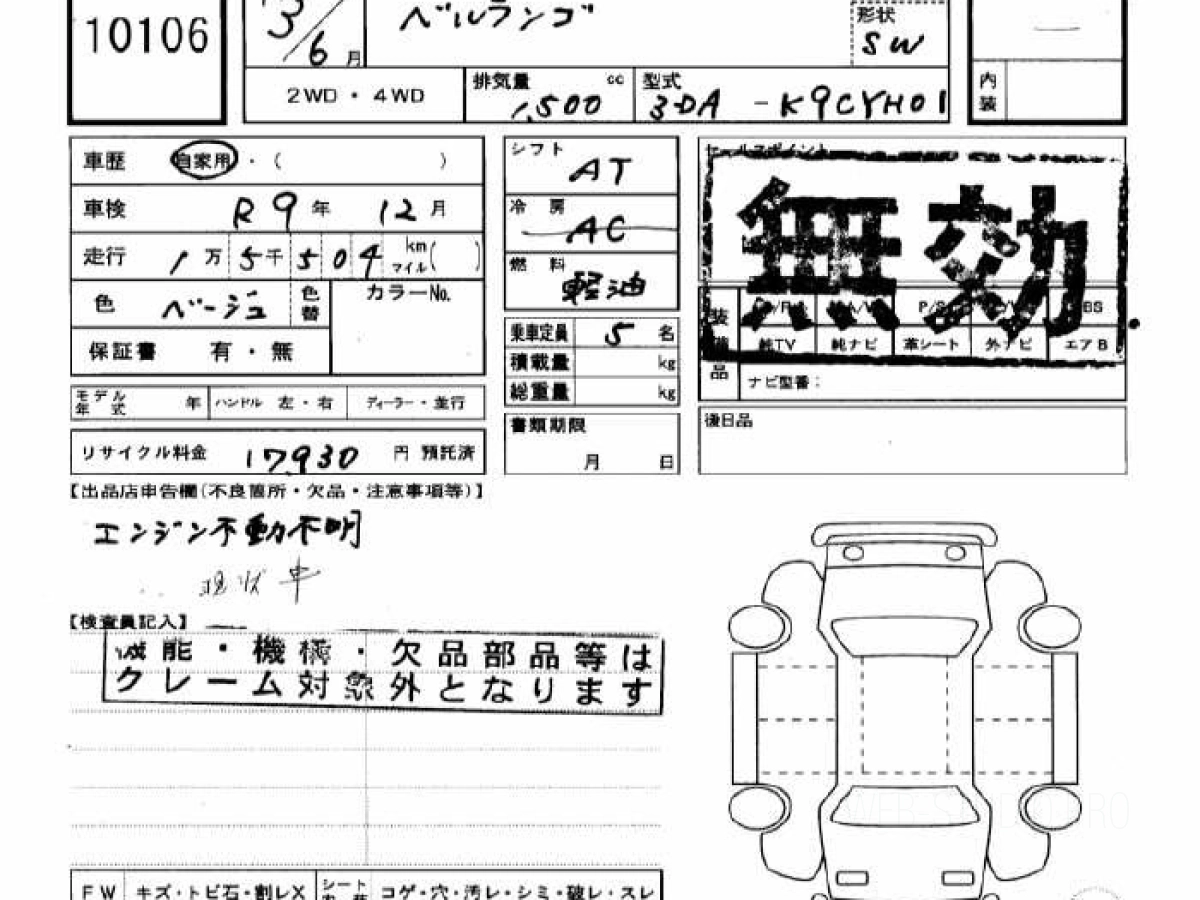 10106
3/6月
ベルランゴ
形状
SW
2WD・4WD
排気量 cc
1,500
型式
3DA-K9CYH01
内装
車歴 自家用・( )
車検 R9年 12月
走行 1万5千504 km マイル( )
色 ベージュ 色替
カラーNo.
保証書 有・無
モデル年式 年 ハンドル 左・右 ディーラー・並行
リサイクル料金 17,930 円 預託済
シフト AT
冷房 AC
燃料 軽油
乗車定員 5名
積載量 kg
総重量 kg
書類期限
月 日
セールスポイント
無効
純TV 純ナビ 革シート 外ナビ エアB
ナビ型番:
後日品
【出品店申告欄(不良箇所・欠品・注意事項等)】
エンジン不動不明
現状車
【検査員記入】
機能・機構・欠品部品等は
クレーム対象外となります
FW キズ・トビ石・割レX シート コゲ・穴・汚レ・シミ・破レ・スレ